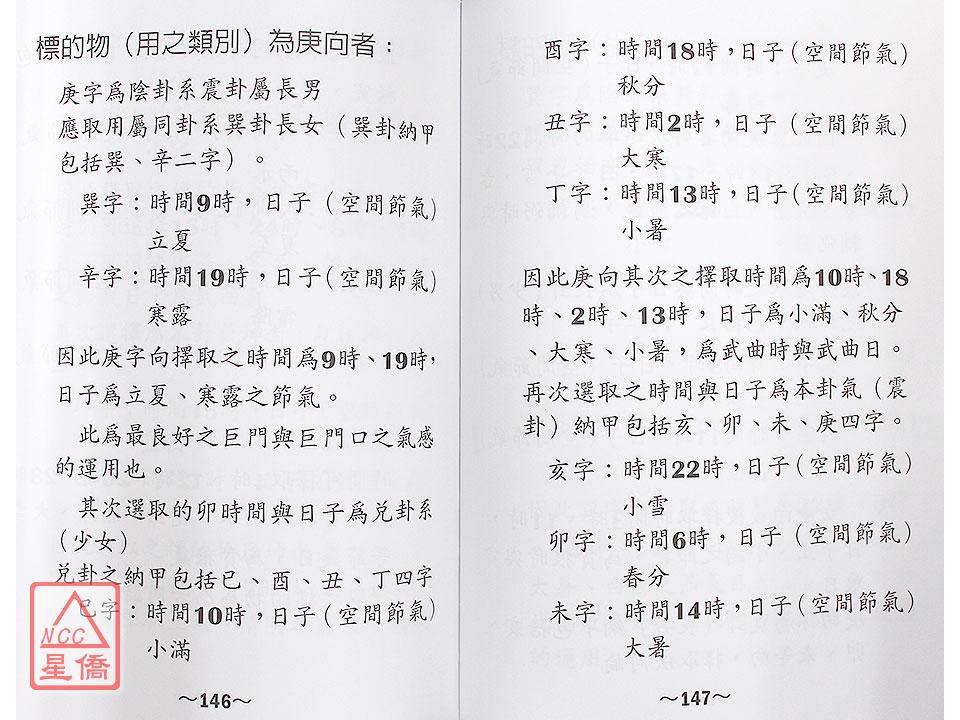 標的物（用之類別）為庚向者：
庚字爲陰卦系震卦屬長男
應取用屬同卦系巽卦長女（巽卦納甲
包括巽、辛二字）。
巽字：時間9時，日子（空間節氣）
立夏
辛字：時間19時，日子（空間節氣）
寒露
因此庚字向擇取之時間爲9時、19時，
日子爲立夏、寒露之節氣。
此爲最良好之巨門與巨門口之氣感
的運用也。
其次選取的卯時間與日子爲兌卦系
（少女）
兌卦之納甲包括巳、酉、丑、丁四字
巳字：時間10時，日子（空間節氣）
小滿
NCC
星僑
～146～
酉字：時間18時，日子（空間節氣）
秋分
丑字：時間2時，日子（空間節氣）
大寒
丁字：時間13時，日子（空間節氣）
小暑
因此庚向其次之擇取時間爲10時、18
時、2時、13時，日子爲小滿、秋分
、大寒、小暑，爲武曲時與武曲日。
再次選取之時間與日子爲本卦氣（震
卦）納甲包括亥、卯、未、庚四字。
亥字：時間22時，日子（空間節氣）
小雪
卯字：時間6時，日子（空間節氣）
春分
未字：時間14時，日子（空間節氣）
大暑
～147～